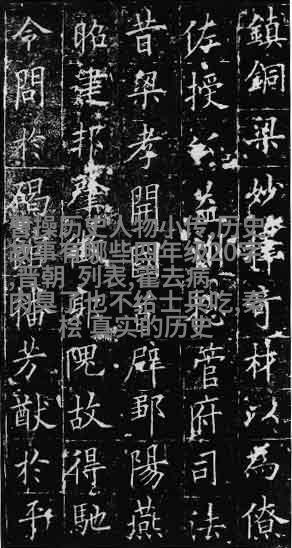 鎮銅梁妙擇奇材以為僚
佐授公益州總管府司法
昔梁孝開國首辟鄒陽燕
昭建邦肇徵郭隗故得馳
令問於碣館播芳猷於平
曹操历史人物小传,历史
故事有哪些四年级20字
,晋朝 列表,霍去病
肉臭了也不给士兵吃,秦
桧 真实的历史